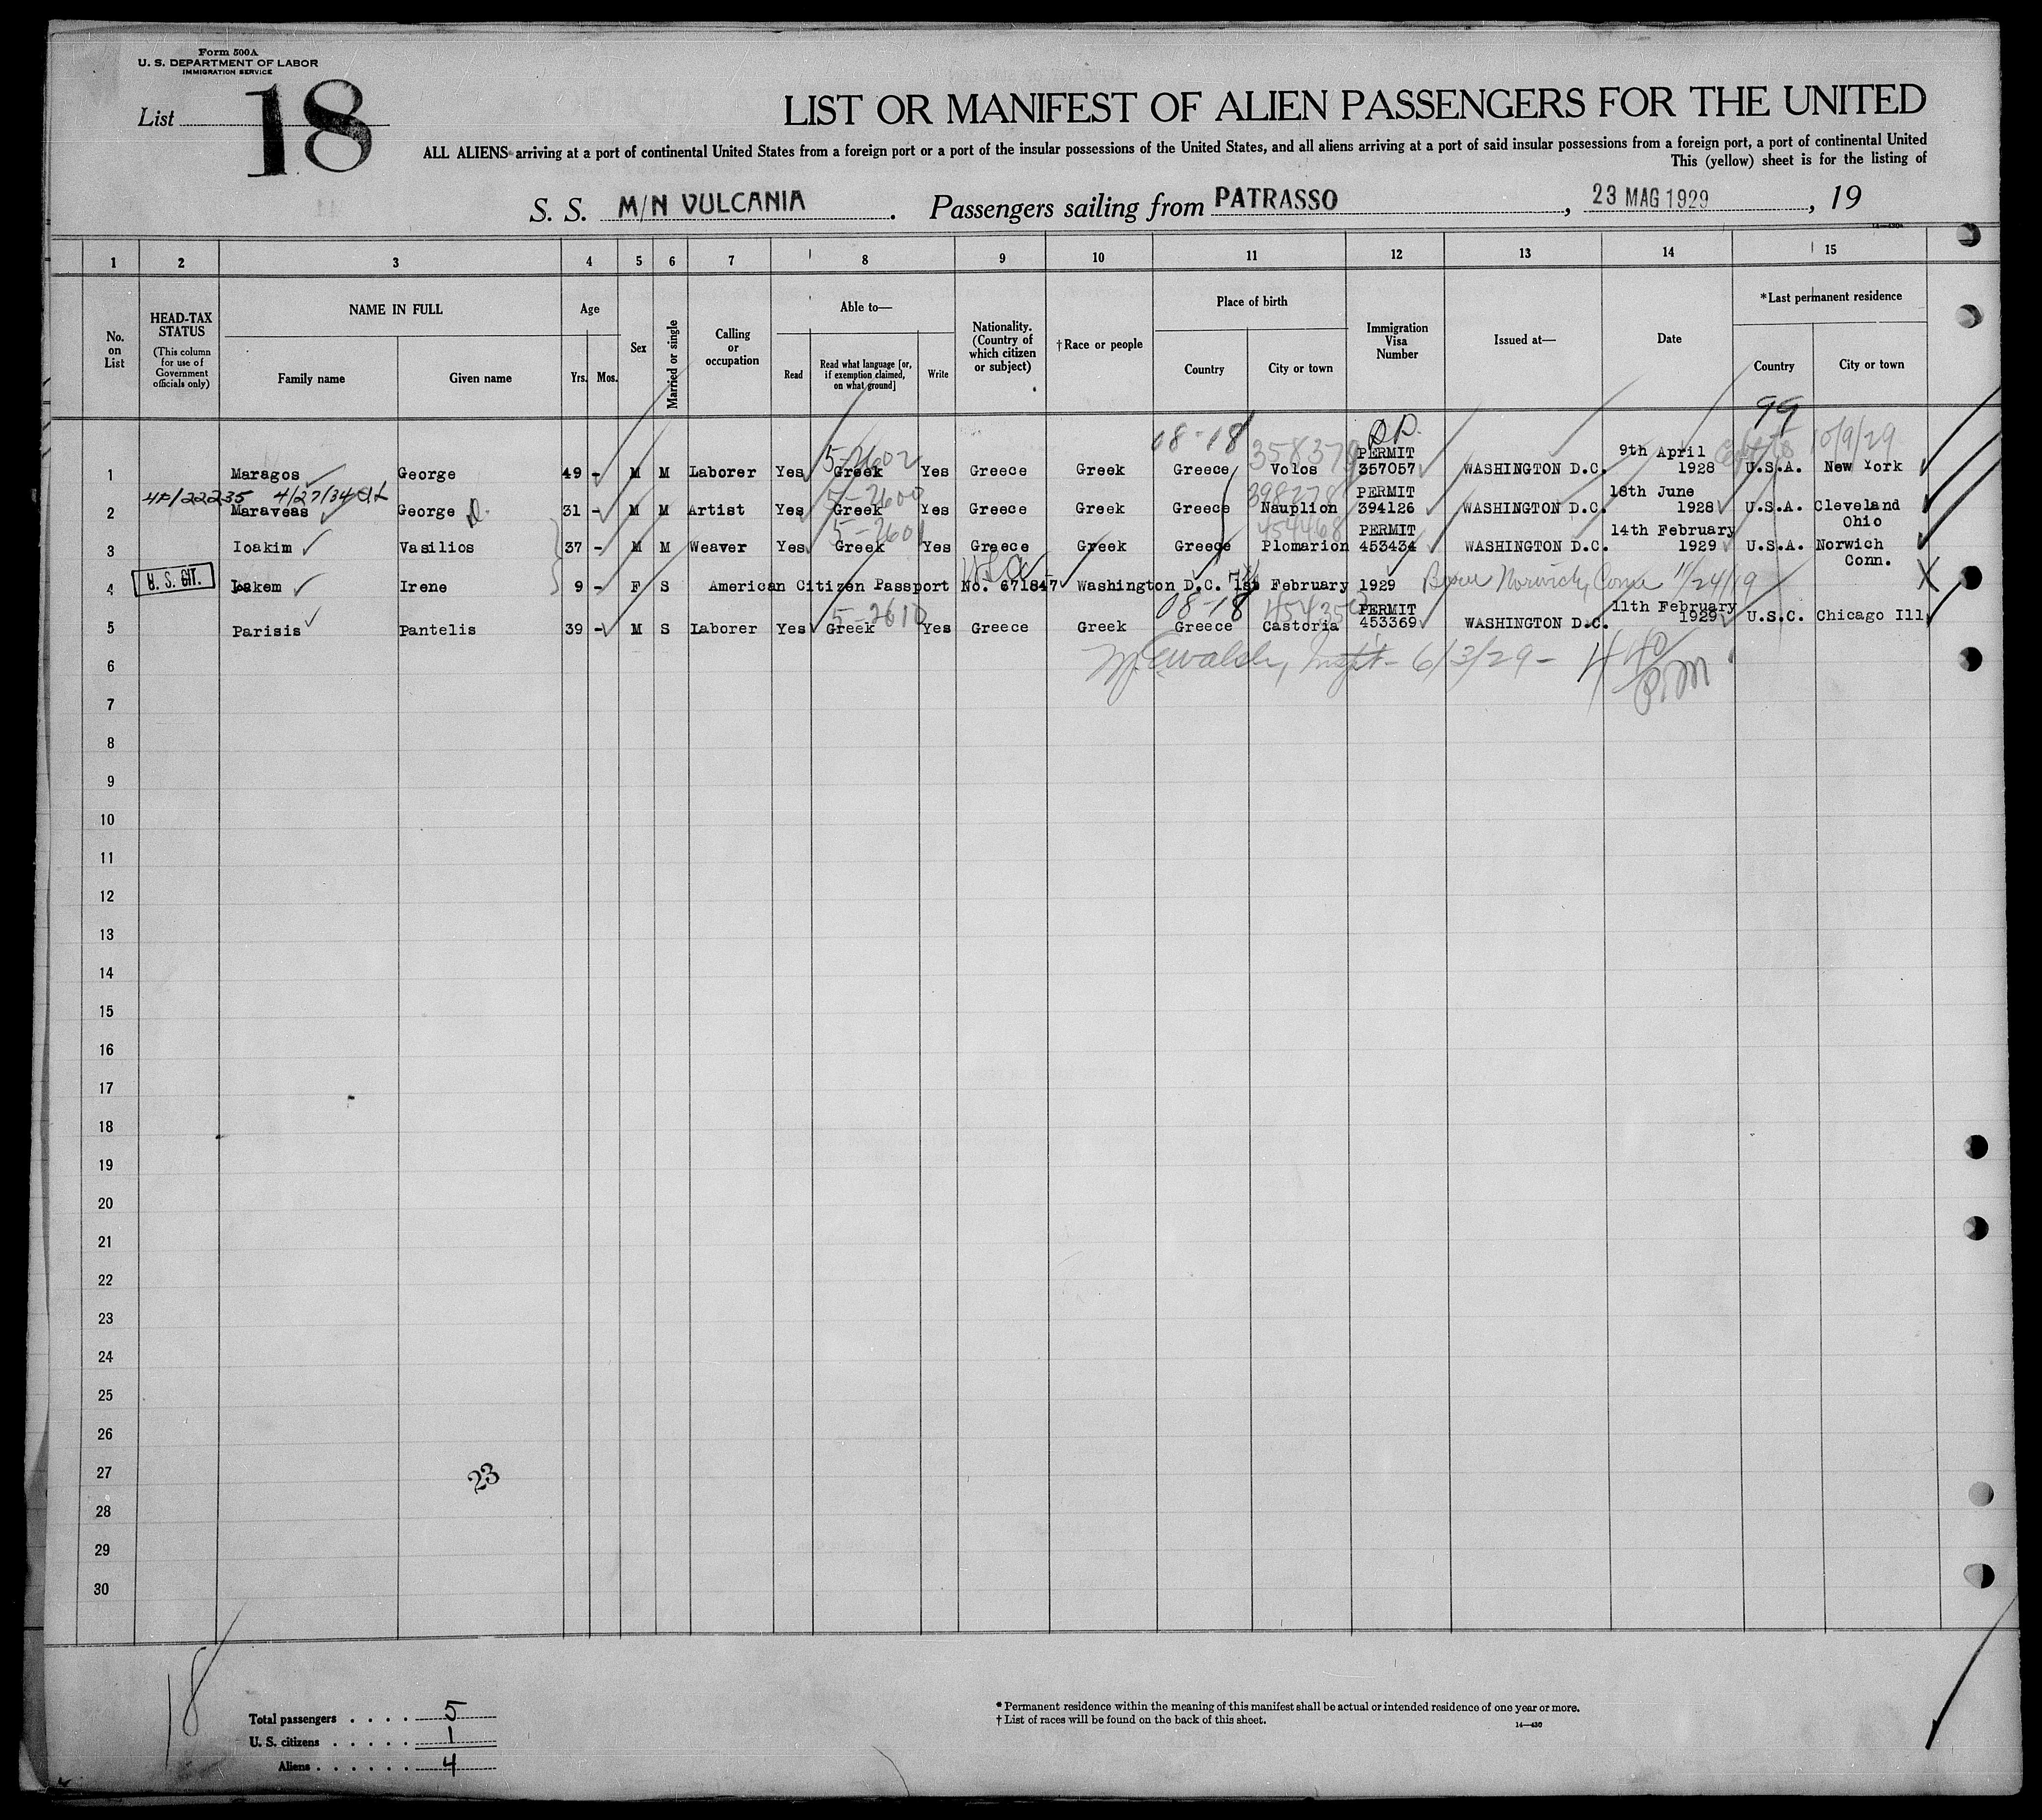 Form 500A
U. S. DEPARTMENT OF LABOR
IMMIGRATION SERVICE
List 18
LIST OR MANIFEST OF ALIEN PASSENGERS FOR THE UNITED
ALL ALIENS arriving at a port of continental United States from a foreign port or a port of the insular possessions of the United States, and all aliens arriving at a port of said insular possessions from a foreign port, a port of continental United
This (yellow) sheet is for the listing of
S. S. M/N VULCANIA. Passengers sailing from PATRASSO, 23 MAG 1929, 19
14—430
1 2 3 4 5 6 7 8 9 10 11 12 13 14 15
No. on List
HEAD-TAX STATUS
(This column for use of Government officials only)
NAME IN FULL
Family name Given name
Age
Yrs. Mos.
Sex
Married or single
Calling or occupation
Able to—
Read
Read what language [or, if exemption claimed, on what ground]
Write
Nationality. (Country of which citizen or subject)
†Race or people
Place of birth
Country City or town
Immigration Visa Number
Issued at—
Date
*Last permanent residence
Country City or town
99
08-18 358379 10/9/29
5-2602 PERMIT 9th April
1 Maragos George 49 - M M Laborer Yes Greek Yes Greece Greek Greece Volos 357057 WASHINGTON D.C. 1928 U.S.A. New York
4/27/34 5-2600 398278 PERMIT 18th June
2 Maraveas George D. 31 - M M Artist Yes Greek Yes Greece Greek Greece Nauplion 394126 WASHINGTON D.C. 1928 U.S.A. Cleveland Ohio
5-2601 454468 PERMIT 14th February
3 Ioakim Vasilios 37 - M M Weaver Yes Greek Yes Greece Greek Greece Plomarion 453434 WASHINGTON D.C. 1929 U.S.A. Norwich Conn.
USA
4 U. S. CIT. Iakem Irene 9 - F S American Citizen Passport No. 671847 Washington D.C. February 1929 Born Norwich, Conn 11/24/19 X
5-2610 08-18 PERMIT 11th February
5 Parisis Pantelis 39 - M S Laborer Yes Greek Yes Greece Greek Greece Castoria 453369 WASHINGTON D.C. 1929 U.S.C. Chicago Ill
6/3/29 -
6
7
8
9
10
11
12
13
14
15
16
17
18
19
20
21
22
23
24
25
26
27
23
28
29
30
18
Total passengers . . . . 5
U. S. citizens . . . . . 1
Aliens . . . . . . 4
* Permanent residence within the meaning of this manifest shall be actual or intended residence of one year or more.
† List of races will be found on the back of this sheet.
14—430